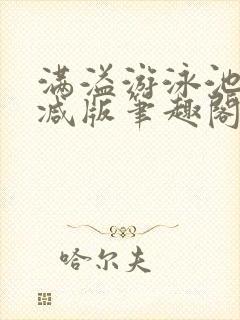 满溢游泳池
减版笔趣阁
哈尔夫